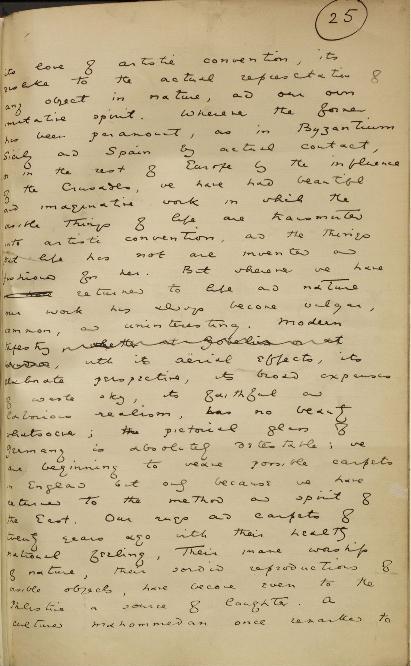 25
its love of artistic convention, its
dislike to the actual representation of
any object in nature, and our own
imitative spirit. Wherever the former
has been paramount, as in Byzantium
Sicily and Spain by actual contact,
or in the rest of Europe by the influence
of the Crusades, we have had beautiful
and imaginative work in which the
visible things of life are transmuted
into artistic convention, and the things
that life has not are invented and
fashioned for her. But wherever we have
returned to life and nature
our work has always become vulgar,
common, and uninteresting. Modern
tapestry whether at Gobelins or at
with its aërial effects, its
elaborate perspective, its broad expanses
of waste sky, its faithful and
laborious realism, has no beauty
whatsoever; the pictorial glass of
Germany is absolutely detestable; we
are beginning to weave possible carpets
in England but only because we have
returned to the method and spirit of
the East. Our rugs and carpets of
twenty years ago with their healthy
national feeling, their inane worship
of nature, their sordid reproductions of
visible objects, have become even to the
Philistine a source of laughter. A
cultured Mahommedan once remarked to